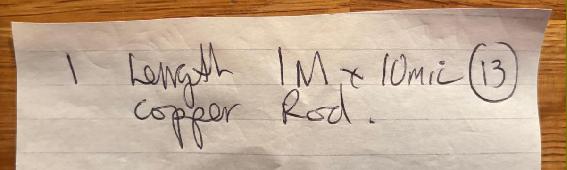 1 Length 1M x 10mic 13
copper Rod.